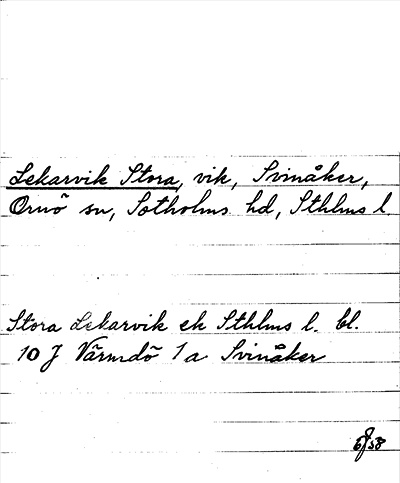 Lekarvik Stora, vik, Svinåker,
Ornö sn, Sotholms hd, Sthlms l
Stora Lekarvik ek Sthlms l. bl.
10 J Värmdö 1 a Svinåker